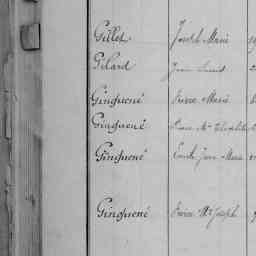 Gillet Joseph Marie
Gilard Jean Louis
Ginguené Pierre Marie
Ginguené Mie Elisabeth
Ginguené Emile Jean Marie
Ginguené Pierre Me Joseph